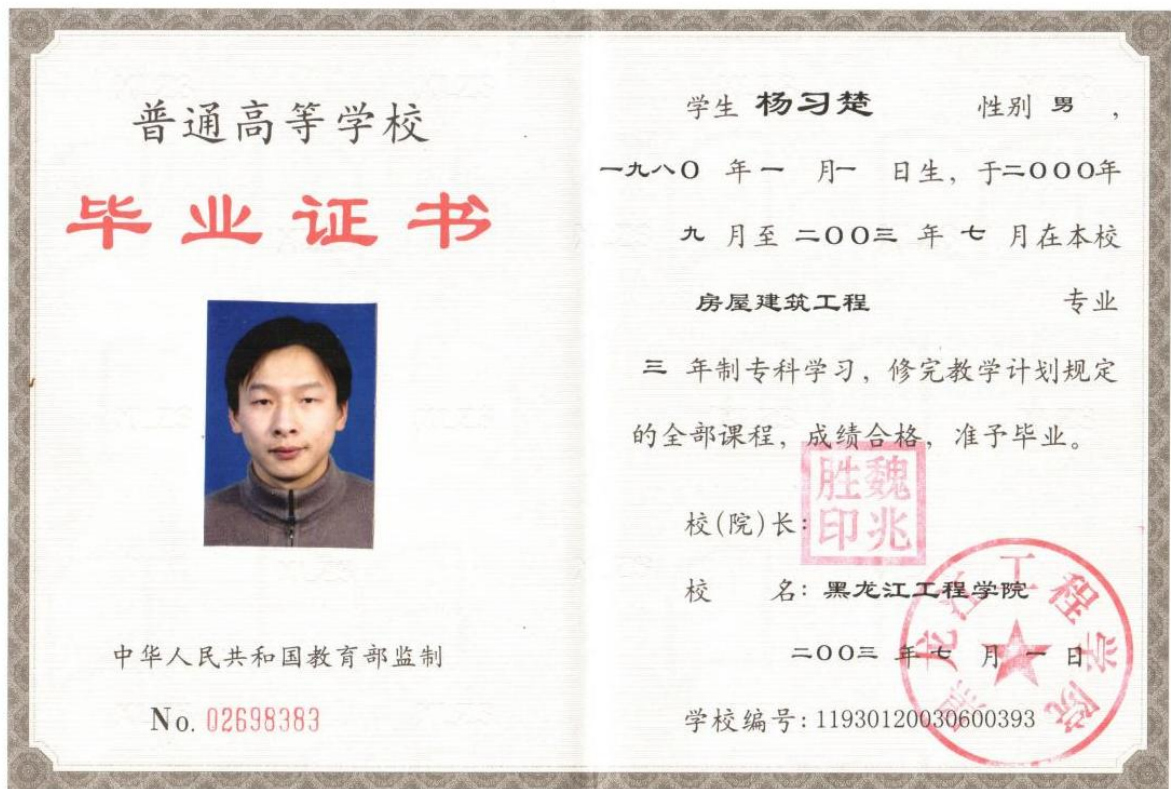 普通高等学校
毕业证书
中华人民共和国教育部监制
No. 02698383
学生 杨习楚 性别 男 ,
一九八〇 年 一 月 一 日生, 于二〇〇〇年
九 月至 二〇〇三 年 七 月在本校
房屋建筑工程 专业
三 年制专科学习, 修完教学计划规定
的全部课程, 成绩合格, 准予毕业。
校(院)长:
魏兆胜印
校 名: 黑龙江工程学院
二〇〇三 年 七 月 一 日
学校编号: 11930120030600393
黑龙江工程学院